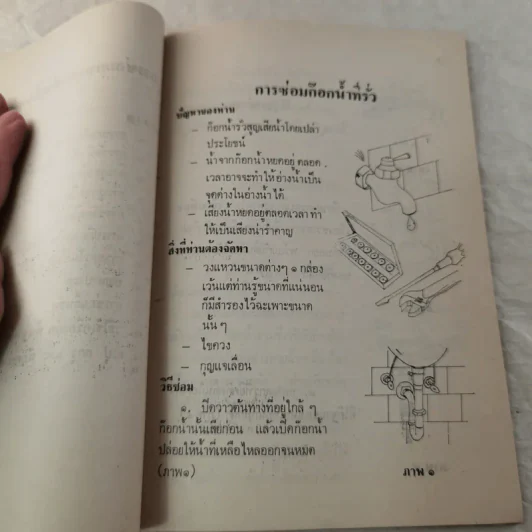 การซ่อมก๊อกน้ำที่รั่ว
ปัญหาของท่าน
– ก๊อกน้ำรั่วสูญเสียน้ำโดยเปล่า
ประโยชน์
– น้ำจากก๊อกน้ำหยดอยู่ตลอด
เวลาอาจจะทำให้อ่างน้ำเป็น
จุดด่างในอ่างน้ำได้
– เสียงน้ำหยดอยู่ตลอดเวลาทำ
ให้เป็นเสียงน่ารำคาญ
สิ่งที่ท่านต้องจัดหา
– วงแหวนขนาดต่างๆ ๑ กล่อง
เว้นแต่ท่านรู้ขนาดที่แน่นอน
ก็มีสำรองไว้ฉะเพาะขนาด
นั้น ๆ
– ไขควง
– กุญแจเลื่อน
วิธีซ่อม
๑. ปิดวาวต้นทางที่อยู่ใกล้ ๆ
ก๊อกน้ำนั้นเสียก่อน แล้วเปิดก๊อกน้ำ
ปล่อยให้น้ำที่เหลือไหลออกจนหมด
(ภาพ๑)
ภาพ ๑